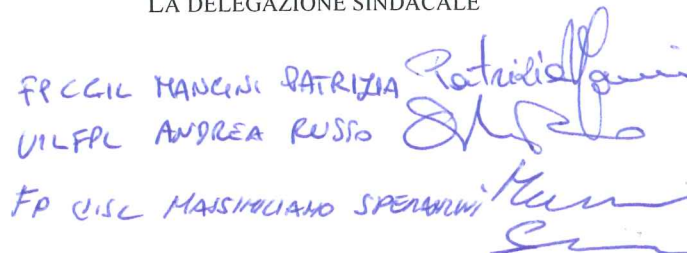 LA DELEGAZIONE SINDACALE
FP CGIL MANCINI PATRIZIA Patrizia
UILFPL ANDREA RUSSO
FP CISL MASSIMILIANO